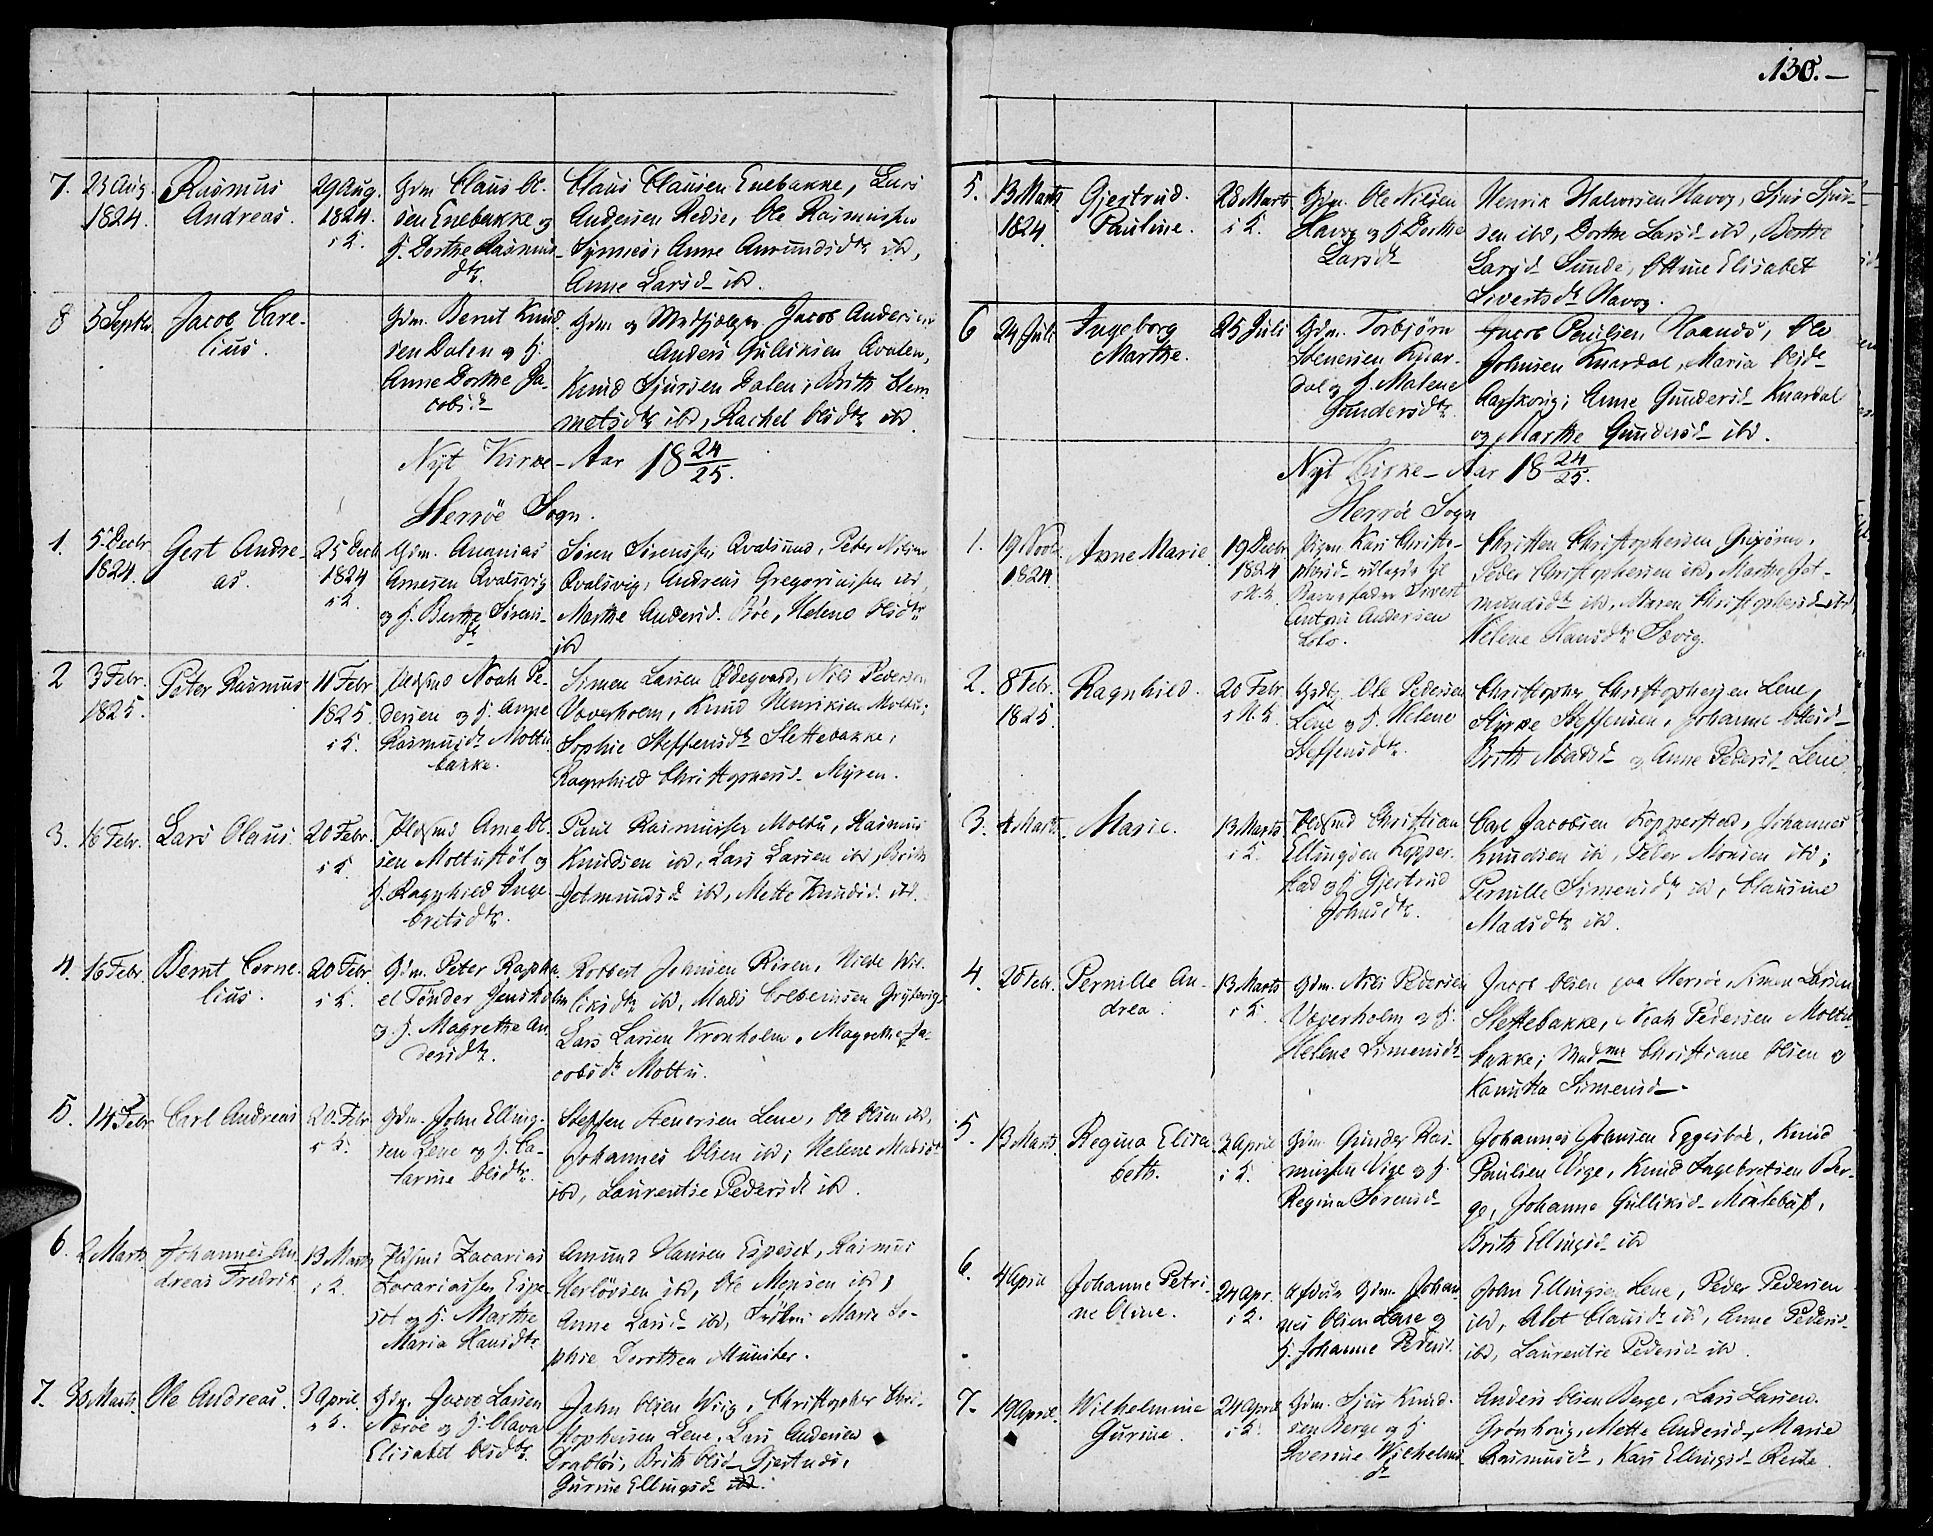 130.
7. 23 Aug. 1824.
Rasmus
Andreas.
29 Aug.
1824.
i K.
Gdm Claus Ol-
sen Enebakke og
H. Dorthe Rasmus
dtr.
Claus Clausen Enebakke, Lars
Andersen Redse, Ole Rasmussen
Synnes; Anne Amundsdtr ibd,
Anne Larsd ibd.
8 5 Septbr
Jacob Care-
lius.
Gdm. Bernt Knud
sen Dalen og H.
Anne Dorthe Ja-
cobsd
Gdm og Medhjelper Jacob Andersen
Anders Gulliksen Qvalen,
Knud Sjursen Dalen; Brith Clem
metsdtr ibd, Rachel Olsdtr ibd.
Nyt Kirke-Aar 18 24/25.
Herröe Sogn.
1. 5 Decbr
1824.
Gert Andre-
as.
25 Decb
1824
i K.
Gdm. Ananias
Arnesen Qvalsvig
og H. Berthe Sörens-
d
Sören Sörenssen Qvalsund, Peter Nilsen
Qvalsvig, Andreas Gregoriussen ibd,
Marthe Andersd. Böe, Helene Olsdtr
ibd
2 3 Febr.
1825.
Peter Rasmus
11 Febr
1825.
i K.
Noah Pe-
dersen og H. Anne
Rasmusd Moltu
bakke.
Simen Larsen Ödegaard, Nils Pedersen
Vaverholm, Knud Henriksen Moltu;
Sophie Steffensdtr Slettebakke;
Ragnhild Christophersd Myren.
3. 16 Febr.
Lars Olaus
20 Febr.
i K.
Arne Ol-
sen Moltustöl og
H. Ragnhild Inge
bretsdtr.
Paul Rasmussen Moltu, Rasmus
Knudsen ibd, Lars Larsen ibd, Brith
Jetmundsd ibd, Mette Knudsd ibd.
4. 16 Febr.
Bernt Corne-
lius.
20 Febr
i K.
Gdm. Peter Rapha
el Tönder Jensholm
og H. Magrethe An
dersdtr.
Robbert Johnsen Riren, Nilde Wil-
liksdtr ibd, Mads Colbensen Grytevig
Lars Larsen Kronholm, Magrethe Ja-
cobsd Moltu.
5. 14 Febr
Carl Andreas
20 Febr
i K.
Gdm. John Elling-
sen Lene og H. Ca-
tarine Olsdtr.
Steffen Stenersen Lene, Ole Olsen ibd,
Johannes Olsen ibd; Helene Madsd
ibd, Laurentse Pedersd ibd.
6. 2 Marts
Johannes An
dreas Fredrik
13 Marts
i K.
Zacarias
Zacariassen Espe-
set og H. Marthe
Maria Hansdtr
Amund Hansen Espeset, Rasmus
Herlövsen ibd, Ole Monsen ibd;
Anne Larsd ibd, Frökn Marie So-
phie Dorothea Münster.
7. Marts
Ole Andreas.
3 April
i K.
Gdm. Jacob Larsen
Neröe og H. Olava
Elisabet Olsdtr.
John Olsen Wiig, Christopher Chri-
stophersen Lene, Lars Andersen
Drablös, Brith Olsd Gjertnes,
Gurine Ellingsd ibd.
5. 13 Marts
1824.
Gjertrud
Pauline.
28 Marts
i K.
Gdm. Ole Nilsen
Havog og H. Dorthe
Larsd
Henrik Halvorsen Havog, Sjur Sjur-
sen ibd, Dorthe Larsd ibd, Berthe
Larsd Sunde, Ottine Elisabet
Sivertsd Havog.
6 24 Juli
Ingeborg
Marthe.
25 Juli
Gdm. Torbjörn
Stenersen Knar-
dal og H. Malene
Gundersdtr
Jacob Paulsen Haands, Ole
Johnsen Knardal, Maria Olsd
Aarskog; Anne Gundersd Knardal
og Marthe Gundersd ibd.
Nyt Kirke-Aar 18 24/25.
Herröe Sogn
1. 19 Novbr
1824
Anne Marie
19 Decbr
1824
i K.
Pigen Kari Christo-
phersd udlagde til
Barnefader Sivert
Antoni Andersen
Christen Christophersen Gusöen,
Peder Christophersen ibd, Marthe Jet-
mundsdtr ibd, Maren Christophersd ibd,
Helene Hansdtr Sævig.
2. 8 Febr.
1825.
Ragnhild.
20 Febr.
Ole Pedersen
Lene og H. Helene
Steffensdtr.
Christopher Christophersen Lene,
Styrke Steffensen, Johanne Olsd
Brith Madsd og Anne Pedersd Lene
3. 4 Marts
Marie.
13 Marts
i K.
Christian
Ellingsen Kopper-
stad og H. Gjertrud
Johnsdtr.
Carl Jacobsen Kopperstad, Johannes
Knudsen ibd, Peter Monsen ibd;
Pernille Simensdtr ibd, Clausine
Madsdtr ibd.
4. 20 Febr.
Pernille An-
drea.
13 Marts
i K.
Gdm. Nils Pedersen
Vaverholm og H.
Helene Simensd
Jacob Olsen paa Herröe, Simen Larsen
Slettebakke, Noah Pedersen Moltu
bakke; Madme Christiane Olsen og
Kanutta Simensd.
5. 13 Marts
Regina Elisa
beth.
3 April
i K.
Gdm. Gunder Ras-
mussen Vige og H.
Regina Sörensd
Johannes Johnsen Eggesböe, Knud
Paulsen Vige, Knud Ingebretsen Ber-
ge, Johanne Gulliksd Moltebust,
Brith Ellingsd ibd
6. 4 April
Johanne Petri-
ne Oline.
24 Apr.
i K.
Afdöde Gdm. Johan
nes Olsen Lene og
H. Johanne Pedersd
John Ellingsen Lene, Peder Pedersen
ibd, Alet Clausd ibd, Anne Pedersd
ibd, Laurentse Pedersd ibd.
7. 19 April
Wilhelmine
Gurine.
24 April
i K.
Gdm. Sjur Knud-
sen Berge og H.
Severine Wilhelms
d
Anders Olsen Berge, Lars Larsen
Grönhoug, Mette Andersd, Marie
Rasmusd, Kari Ellingsd Reite